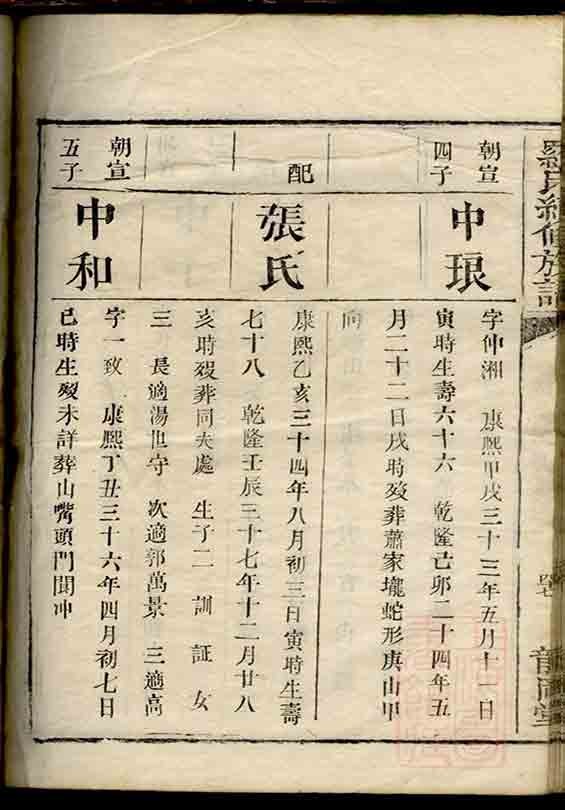 羅氏續修族譜
朝宣
四子
中琅
字仲湘 康熙甲戌三十三年五月十一日
寅時生壽六十六 乾隆己卯二十四年五
月二十二日戌時歿葬蕭家壠蛇形庚山甲
向
配
張氏
康熙乙亥三十四年八月初三日寅時生壽
七十八 乾隆壬辰三十七年十二月廿八
亥時歿葬同夫處 生子二 訓 証 女
三 長適湯世守 次適郭萬景 三適高
朝宣
五子
中和
字一致 康熙丁丑三十六年四月初七日
巳時生歿未詳葬山嘴頭門閬冲